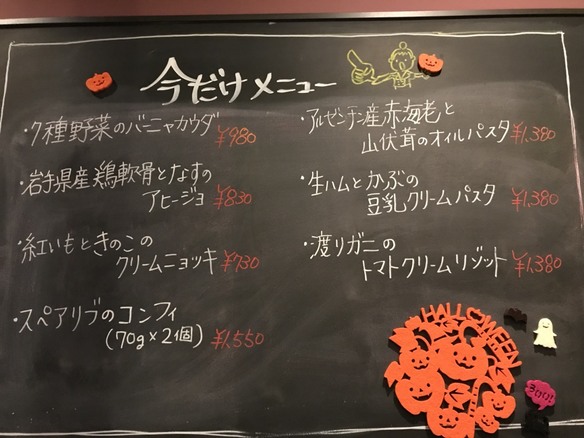 今だけメニュー
・7種野菜のバーニャカウダ ¥980
・岩手県産鶏軟骨となすの
アヒージョ ¥830
・紅いもときのこの
クリームニョッキ ¥730
・スペアリブのコンフィ
(70g×2個) ¥1,550
・アルゼンチン産赤海老と
山伏茸のオイルパスタ ¥1,380
・生ハムとかぶの
豆乳クリームパスタ ¥1,380
・渡りガニの
トマトクリームリゾット ¥1,380
HALLOWEEN
BOO!